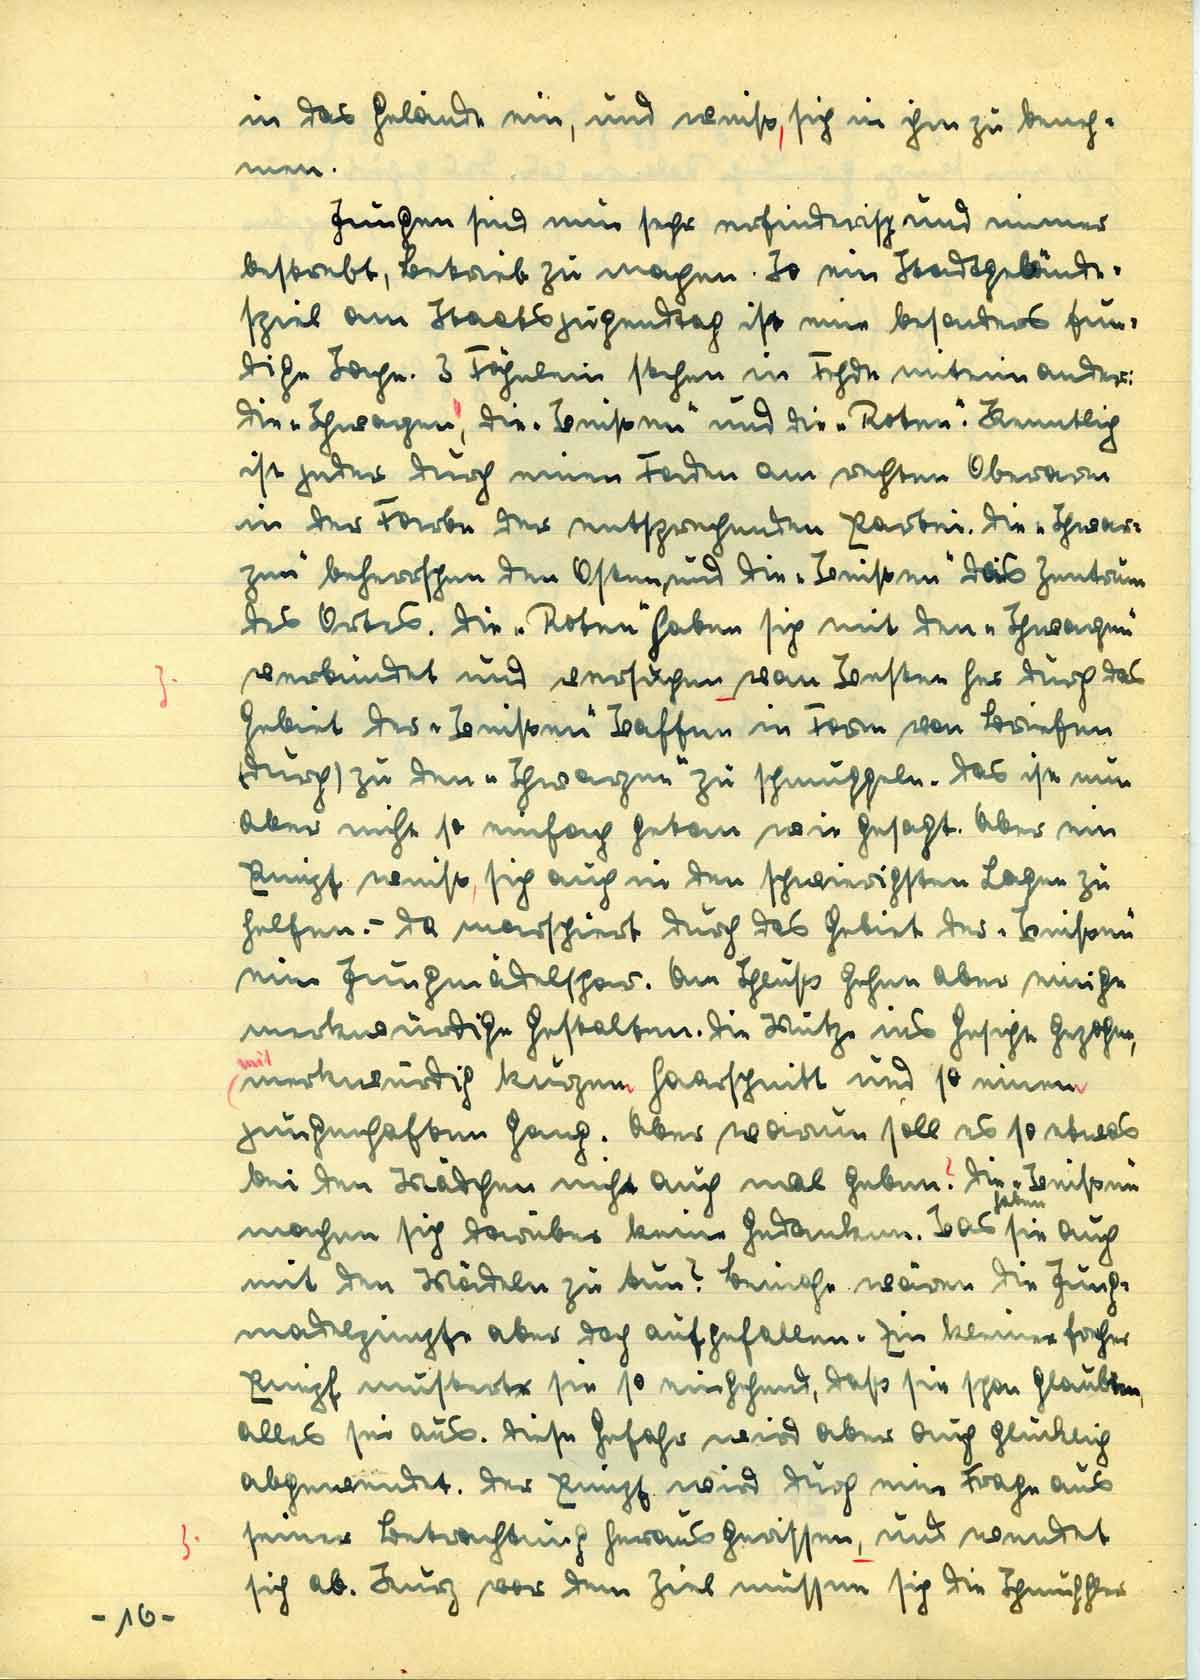 in das Gelände ein, und weiss, sich in ihm zu beneh-
men.
Jungen sind nun sehr erfinderisch und immer
bestrebt, Betrieb zu machen. So ein Stadtgelände-
spiel am Staatsjugendtag ist eine besonders fun-
dige Sache. 3 Fähnlein stehen in Fehde miteinander:
die „Schwarzen", die „Weissen" und die „Roten". Kenntlich
ist jeder durch einen Faden am rechten Oberarm
in der Farbe der entsprechenden Partei. Die „Schwar-
zen" beherrschen den Osten, und die „Weissen" das Zentrum
des Ortes. Die „Roten" haben sich mit den „Schwarzen"
verbündet und versuchen von Westen her durch das
Gebiet der „Weissen" Waffen in Form von Briefen
(durch) zu den „Schwarzen" zu schmuggeln. Das ist nun
aber nicht so einfach getan wie gesagt. Aber ein
Pimpf weiss, sich auch in den schwierigsten Lagen zu
helfen. – Da marschiert durch das Gebiet der „Weissen"
eine Jungmädelschar. Am Schluss gehen aber einige
merkwürdige Gestalten. Die Mütze ins Gesicht gezogen,
mit
merkwürdig kurzem Haarschnitt und so einem
jungenhaften Gang. Aber warum soll es so etwas
bei den Mädchen nicht auch mal geben? Die „Weissen"
machen sich darüber keine Gedanken. Was haben sie auch
mit den Mädeln zu tun? Beinahe wären die Jung-
mädelpimpfe aber doch aufgefallen. Ein kleiner frecher
Pimpf musterte sie so eingehend, dass sie schon glaubten,
alles sei aus. Diese Gefahr wird aber auch glücklich
abgewendet. Der Pimpf wird durch eine Frage aus
seiner Betrachtung herausgerissen, und wendet
sich ab. Kurz vor dem Ziel müssen sich die Schmuggler
- 16 -